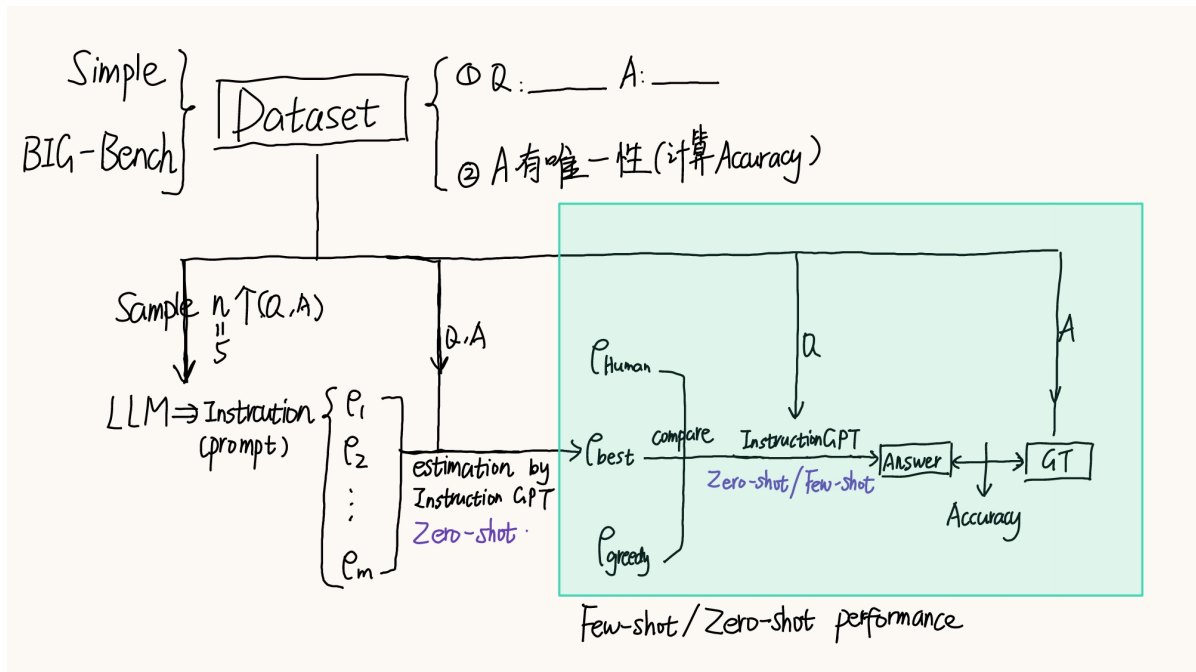 Simple
BIG-Bench
Dataset
① Q: A:
② A有唯一性(计算Accuracy)
Sample n个(Q,A)
=
5
Q,A
Q
A
LLM⇒Instrcution
(prompt)
ρ1
ρ2
⋮
ρm
estimation by
Instruction GPT
Zero-shot.
ρHuman
ρbest
ρgreedy
compare
InstructionGPT
Zero-shot/Few-shot
Answer
GT
Accuracy
Few-shot/Zero-shot performance